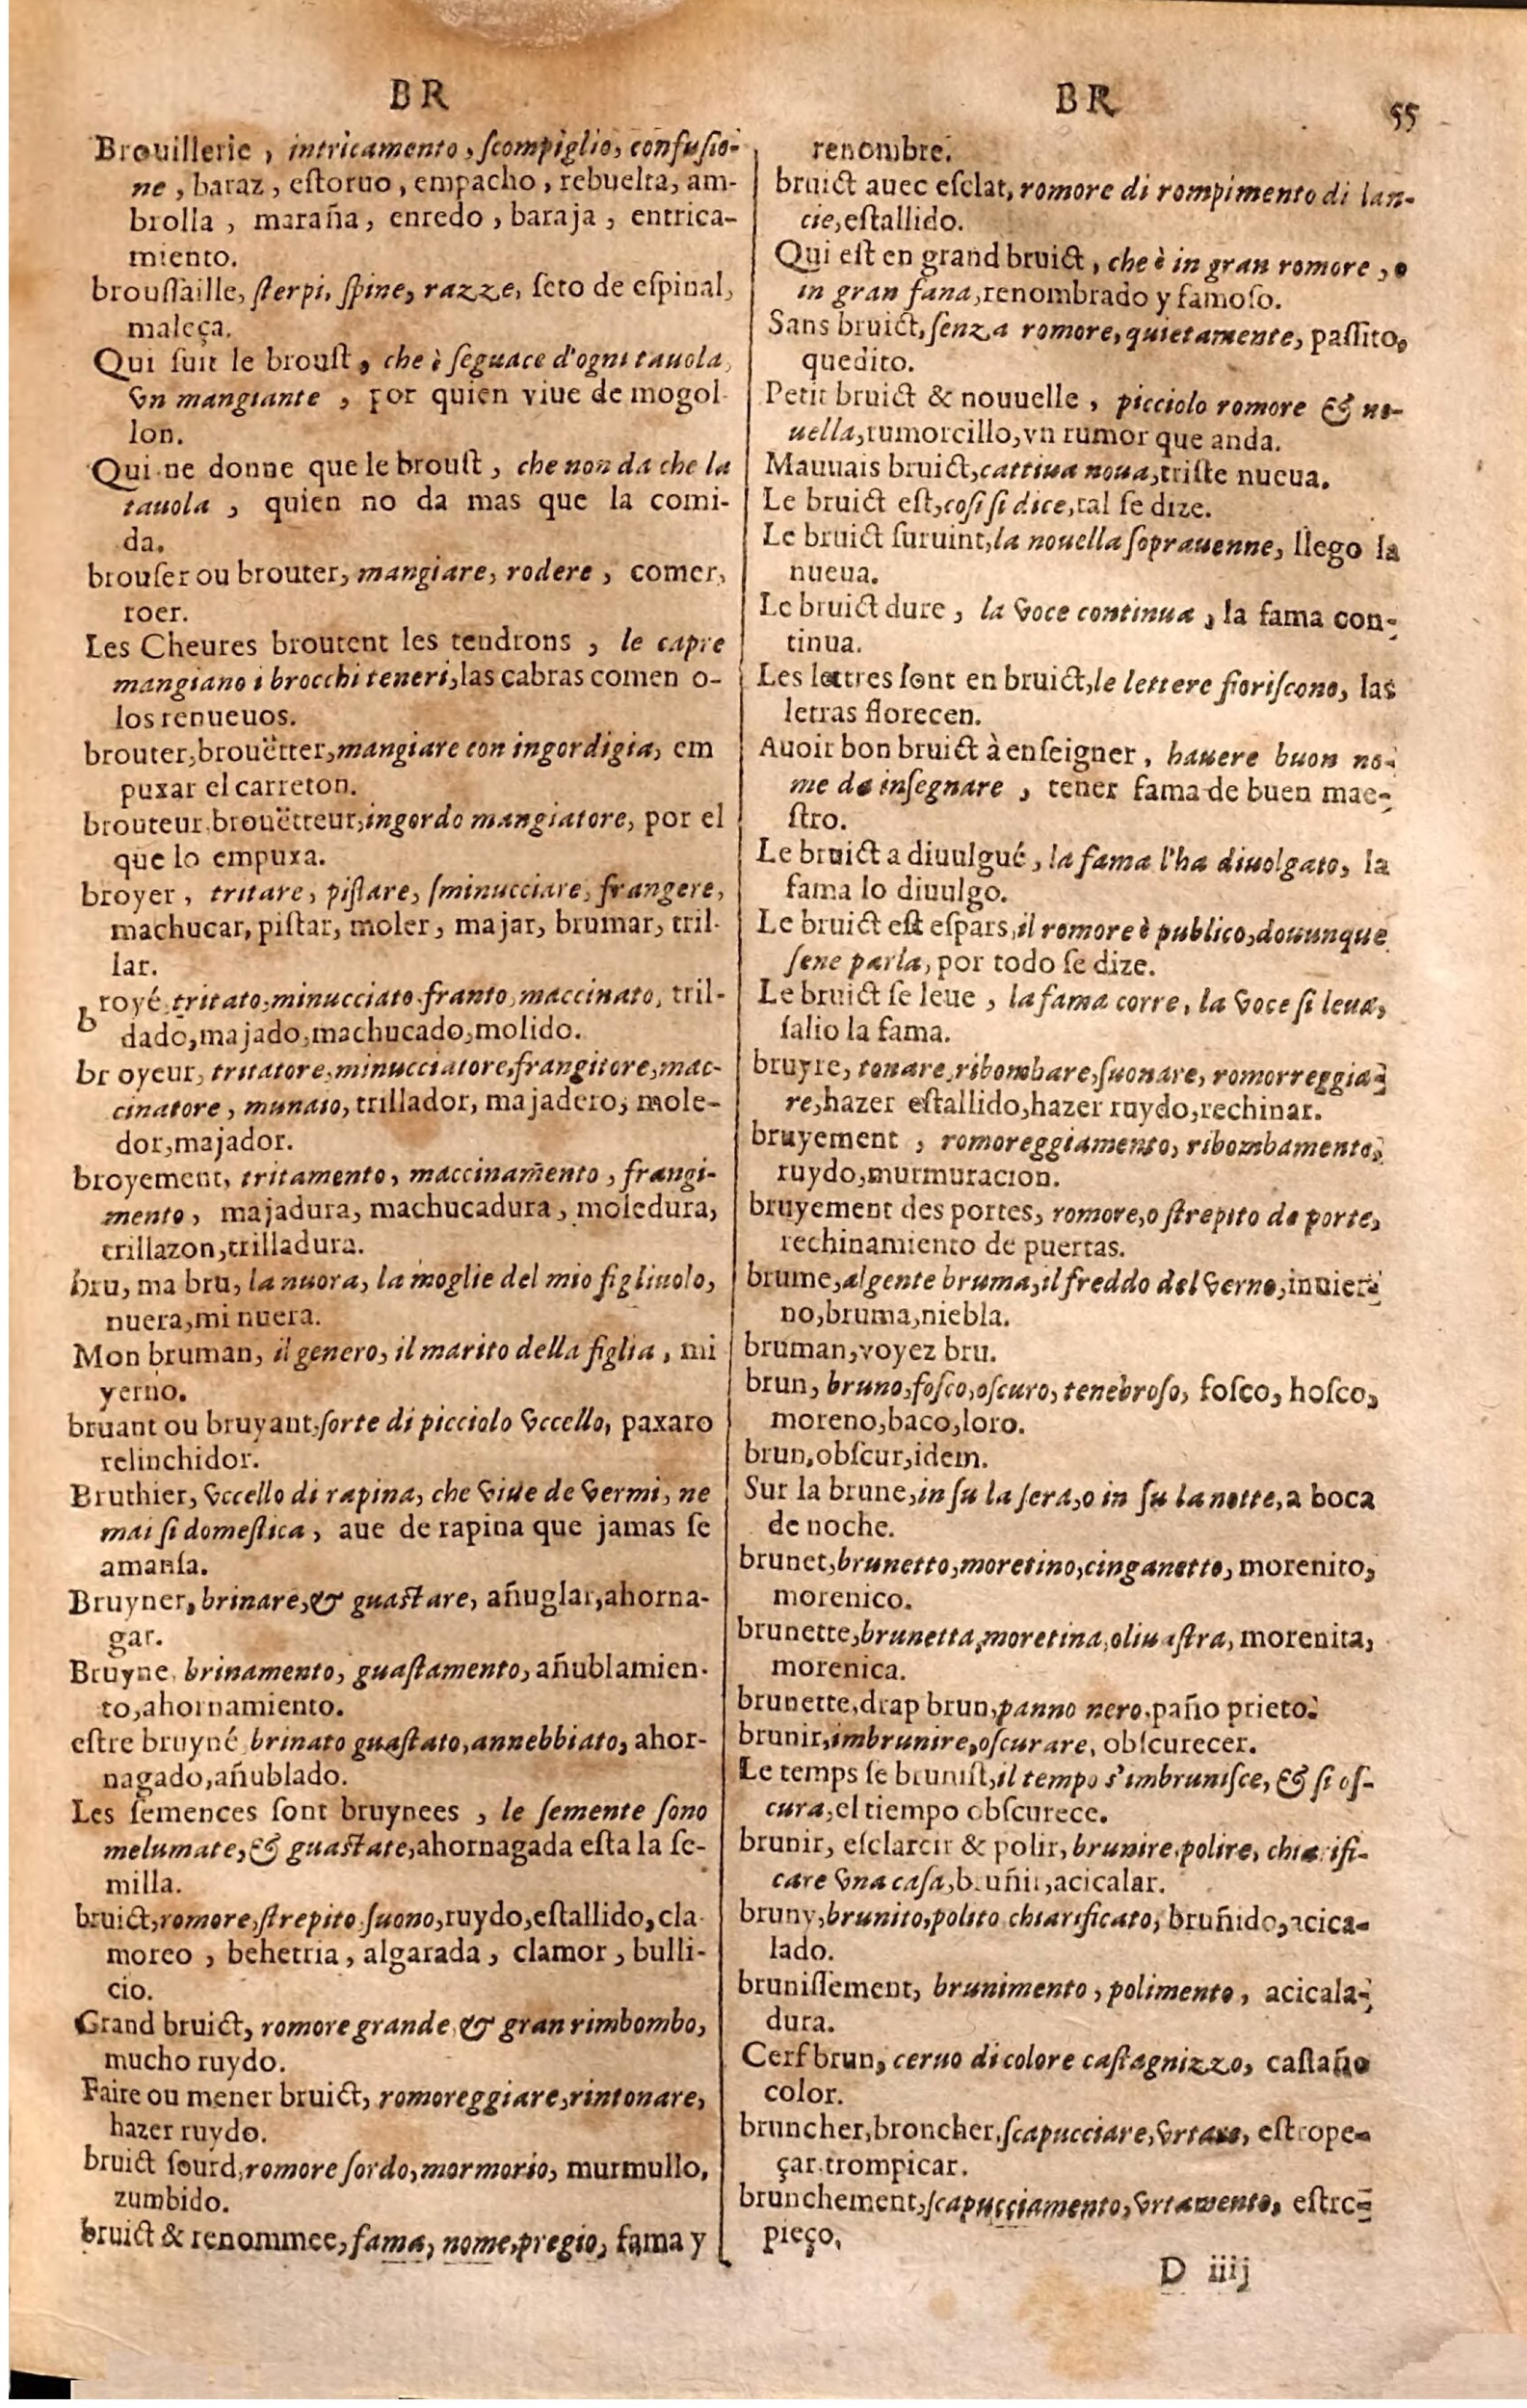 BR
Brouillerie, intricamento, ſcompiglio, confuſio-
ne, baraz, eſtoruo, empacho, rebuelta, am-
brolla, maraña, enredo, baraja, entrica-
miento.
brouſſaille, ſterpi, ſpine, razze, ſeto de eſpinal,
maleça.
Qui ſuit le brouſt, che è ſeguace d'ogni tauola,
vn mangiante, por quien viue de mogol-
lon.
Qui ne donne que le brouſt, che non da che la
tauola, quien no da mas que la comi-
da.
brouſer ou brouter, mangiare, rodere, comer,
roer.
Les Cheures broutent les tendrons, le capre
mangiano i brocchi teneri, las cabras comen o-
los renueuos.
brouter, brouëtter, mangiare con ingordigia, em
puxar el carreton.
brouteur, brouëtteur, ingordo mangiatore, por el
que lo empuxa.
broyer, tritare, piſtare, ſminucciare, frangere,
machucar, piſtar, moler, majar, brumar, tril-
lar.
broyé, tritato, minucciato, franto, maccinato, tril-
dado, majado, machucado, molido.
br oyeur, tritatore, minucciatore, frangitore, mac-
cinatore, munaio, trillador, majadero, mole-
dor, majador.
broyement, tritamento, maccinam̃ento, frangi-
mento, majadura, machucadura, moledura,
trillazon, trilladura.
bru, ma bru, la nuora, la moglie del mio figliuolo,
nuera, mi nuera.
Mon bruman, il genero, il marito della figlia, mi
yerno.
bruant ou bruyant, ſorte di picciolo vccello, paxaro
relinchidor.
Bruthier, vccello di rapina, che viue de vermi, ne
mai ſi domeſtica, aue de rapina que jamas ſe
amanſa.
Bruyner, brinare, & guaſtare, añuglar, ahorna-
gar.
Bruyne, brinamento, guaſtamento, añublamien-
to, ahornamiento.
eſtre bruyné, brinato guaſtato, annebbiato, ahor-
nagado, añublado.
Les ſemences ſont bruynees, le ſemente ſono
melumate, & guaſtate, ahornagada eſta la ſe-
milla.
bruict, romore, ſtrepito, ſuono, ruydo, eſtallido, cla
moreo, behetria, algarada, clamor, bulli-
cio.
Grand bruict, romore grande, & gran rimbombo,
mucho ruydo.
Faire ou mener bruict, romoreggiare, rintonare,
hazer ruydo.
bruict ſourd, romore ſordo, mormorio, murmullo,
zumbido.
bruict & renommee, fama, nome, pregio, fama y
BR 55
renombre.
bruict auec eſclat, romore di rompimento di lan-
cie, eſtallido.
Qui eſt en grand bruict, che è in gran romore, o
in gran fana, renombrado y famoſo.
Sans bruict, ſenza romore, quietamente, paſſito,
quedito.
Petit bruict & nouuelle, picciolo romore & no-
uella, rumorcillo, vn rumor que anda.
Mauuais bruict, cattiua noua, triſte nueua.
Le bruict eſt, coſi ſi dice, tal ſe dize.
Le bruict ſuruint, la nouella ſoprauenne, llego la
nueua.
Le bruict dure, la voce continua, la fama con-
tinua.
Les lettres ſont en bruict, le lettere fioriſcono, las
letras florecen.
Auoir bon bruict à enſeigner, hauere buon no-
me da inſegnare, tener fama de buen mae-
ſtro.
Le bruict a diuulgué, la fama l'ha diuolgato, la
fama lo diuulgo.
Le bruict eſt eſpars, il romore è publico, douunque
ſene parla, por todo ſe dize.
Le bruict ſe leue, la fama corre, la voce ſi leua,
ſalio la fama.
bruyre, tonare, ribombare, ſuonare, romorreggia-
re, hazer eſtallido, hazer ruydo, rechinar.
bruyement, romoreggiamento, ribombamento,
ruydo, murmuracion.
bruyement des portes, romore, o ſtrepito de porte,
rechinamiento de puertas.
brume, algente bruma, il freddo del verno, inuier-
no, bruma, niebla.
bruman, voyez bru.
brun, bruno, foſco, oſcuro, tenebroſo, foſco, hoſco,
moreno, baco, loro.
brun, obſcur, idem.
Sur la brune, in ſu la ſera, o in ſu la notte, a boca
de noche.
brunet, brunetto, moretino, cinganetto, morenito,
morenico.
brunette, brunetta, moretina, oliuaſtra, morenita,
morenica.
brunette, drap brun, panno nero, paño prieto.
brunir, imbrunire, oſcurare, obſcurecer.
Le temps ſe bruniſt, il tempo s'imbruniſce, & ſi oſ-
cura, el tiempo obſcurece.
brunir, eſclarcir & polir, brunire, polire, chiarifi-
care vna caſa, bruñir, acicalar.
bruny, brunito, polito chiarificato, bruñido, acica-
lado.
bruniſſement, brunimento, polimento, acicala-
dura.
Cerf brun, ceruo di colore caſtagnizzo, caſtaño
color.
bruncher, broncher, ſcapucciare, vrtare, eſtrope-
çar, trompicar.
brunchement, ſcapucciamento, vrtamento, eſtro-
pieço,
D iiij